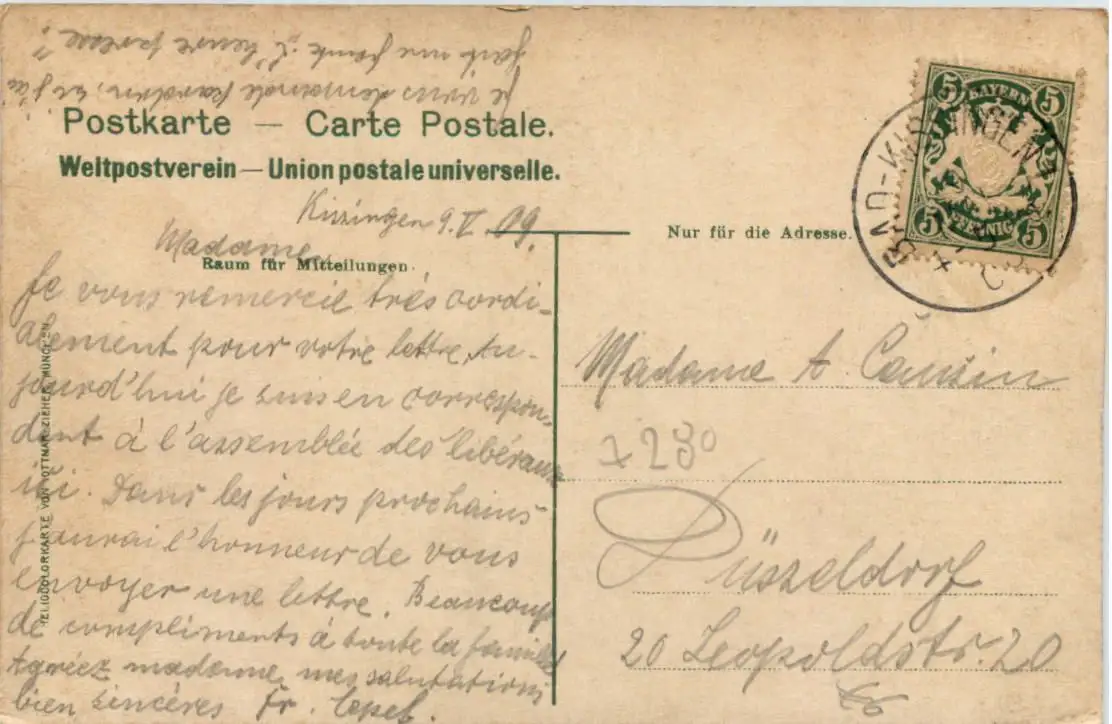 Je vous demande pardon, si j'ai
Postkarte — Carte Postale.
Weltpostverein — Union postale universelle.
Kissingen 9. V. 09.
Madame,
Raum für Mitteilungen.
Je vous remercie très cordi-
alement pour votre lettre, Au-
jourd'hui je suis en correspon-
dent à l'assemblée des libéraux
ici. Dans les jours prochains
j'aurai l'honneur de vous
envoyer une lettre. Beaucoup
de compliments à toute la famille
Agréez madame, mes salutations
bien sincères Fr.
HELIOCOLORKARTE VON OTTMAR ZIEHER, MÜNCHEN
Nur für die Adresse.
BAD-KISSINGEN
5 BAYERN 5
5 PFENNIG 5
Madame A.
7280
Düsseldorf
20 Leopoldstr. 20